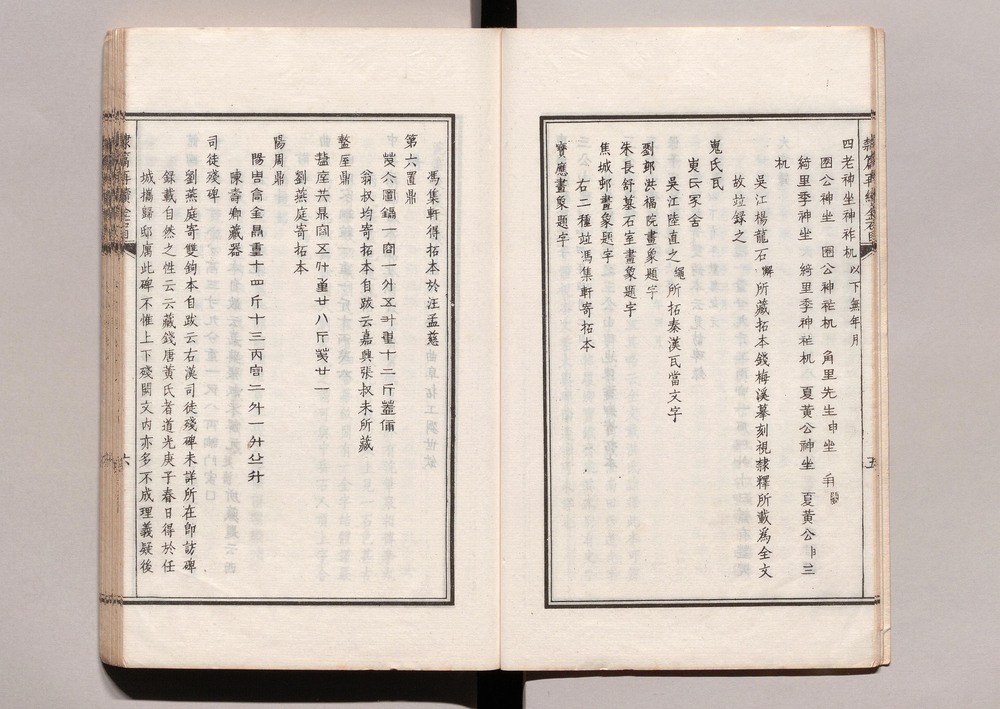 四老神坐神祚机以下無年月
圈公神坐 圈公神祚机 角里先生神坐 角闕
綺里季神坐 綺里季神祚机 夏黃公神坐 夏黃公神三
机
吳江楊龍石澥所藏拓本錢梅溪摹刻視隸釋所載為全文
故竝錄之
嵬氏瓦
嵬氏冢舍
吳江陸直之繩所拓秦漢瓦當文字
劉邨洪福院畫象題字
朱長舒墓石室畫象題字
焦城邨畫象題字
右二種竝馮集軒寄拓本
寶應畫象題字
隸篇再續金石目
五
馮集軒得拓本於汪孟慈
第六置鼎
翁叔均寄拓本自跋云嘉興張叔未所藏
盩厔鼎
劉燕庭寄拓本
陽周鼎
陳壽卿藏器
司徒殘碑
劉燕庭寄雙鉤本自跋云右漢司徒殘碑未詳所在卽訪碑
錄載自然之性云云藏錢唐黃氏者道光庚子春日得於任
城攜歸邸寓此碑不惟上下殘闕文內亦多不成理義疑後
隸篇再續金石目
六